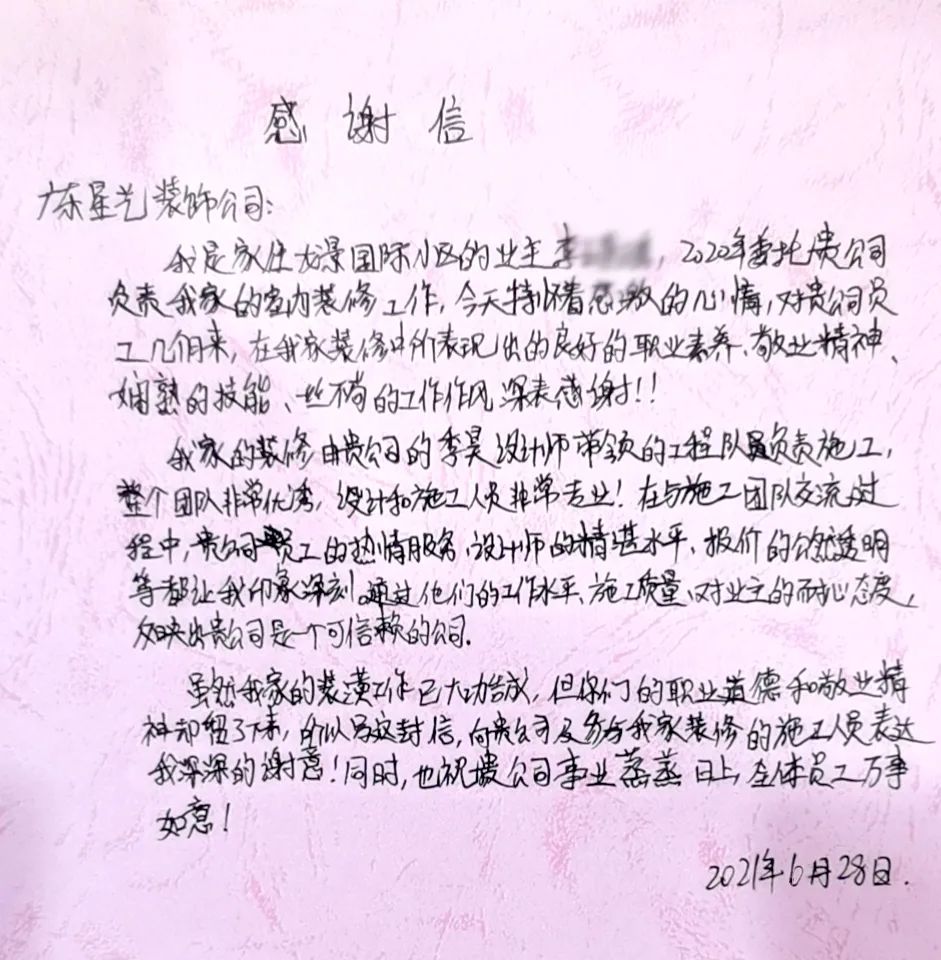 感谢信
广东星艺装饰公司:
我是家住龙景国际小区的业主李，2020年委托贵公司
负责我家的室内装修工作，今天特怀着感激的心情，对贵公司员
工几个月来，在我家装修中所表现出的良好的职业素养、敬业精神、
娴熟的技能、一丝不苟的工作作风深表感谢!!
我家的装修由贵公司的李昊设计师带领的工程队员负责施工，
整个团队非常优秀，设计和施工人员非常专业！在与施工团队交流过
程中，贵公司员工的热情服务、设计师的精湛水平、报价的公开透明
等都让我印象深刻。通过他们的工作水平、施工质量、对业主的耐心态度，
反映出贵公司是一个可信赖的公司.
虽然我家的装潢工作已大功告成，但你们的职业道德和敬业精
神却留了下来，所以写这封信，向贵公司及参与我家装修的施工人员表达
我深深的谢意！同时，也祝贵公司事业蒸蒸日上，全体员工万事
如意！
2021年6月28日.